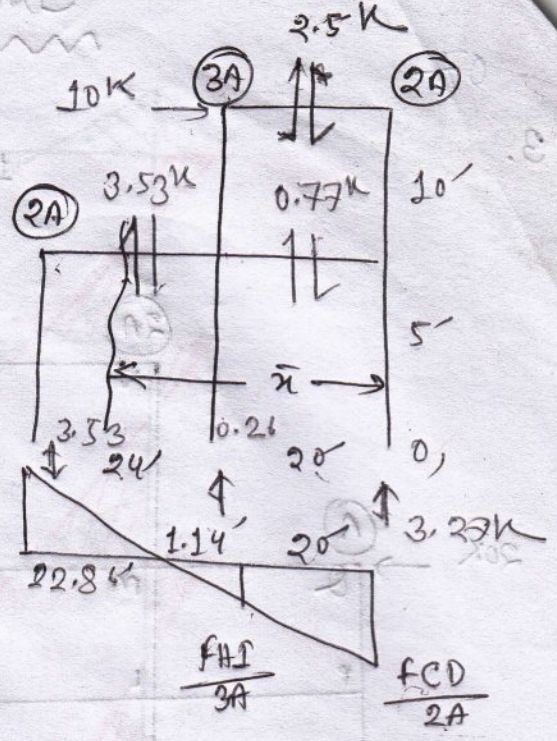 2.5 K
10K 3A 2A
3.53K 0.77K 10′
2A
5′
x̄
3.53 0.26
24′ 20′ 0,
3.27K
1.14′ 20′
22.86′
FHI
3A
FCD
2A